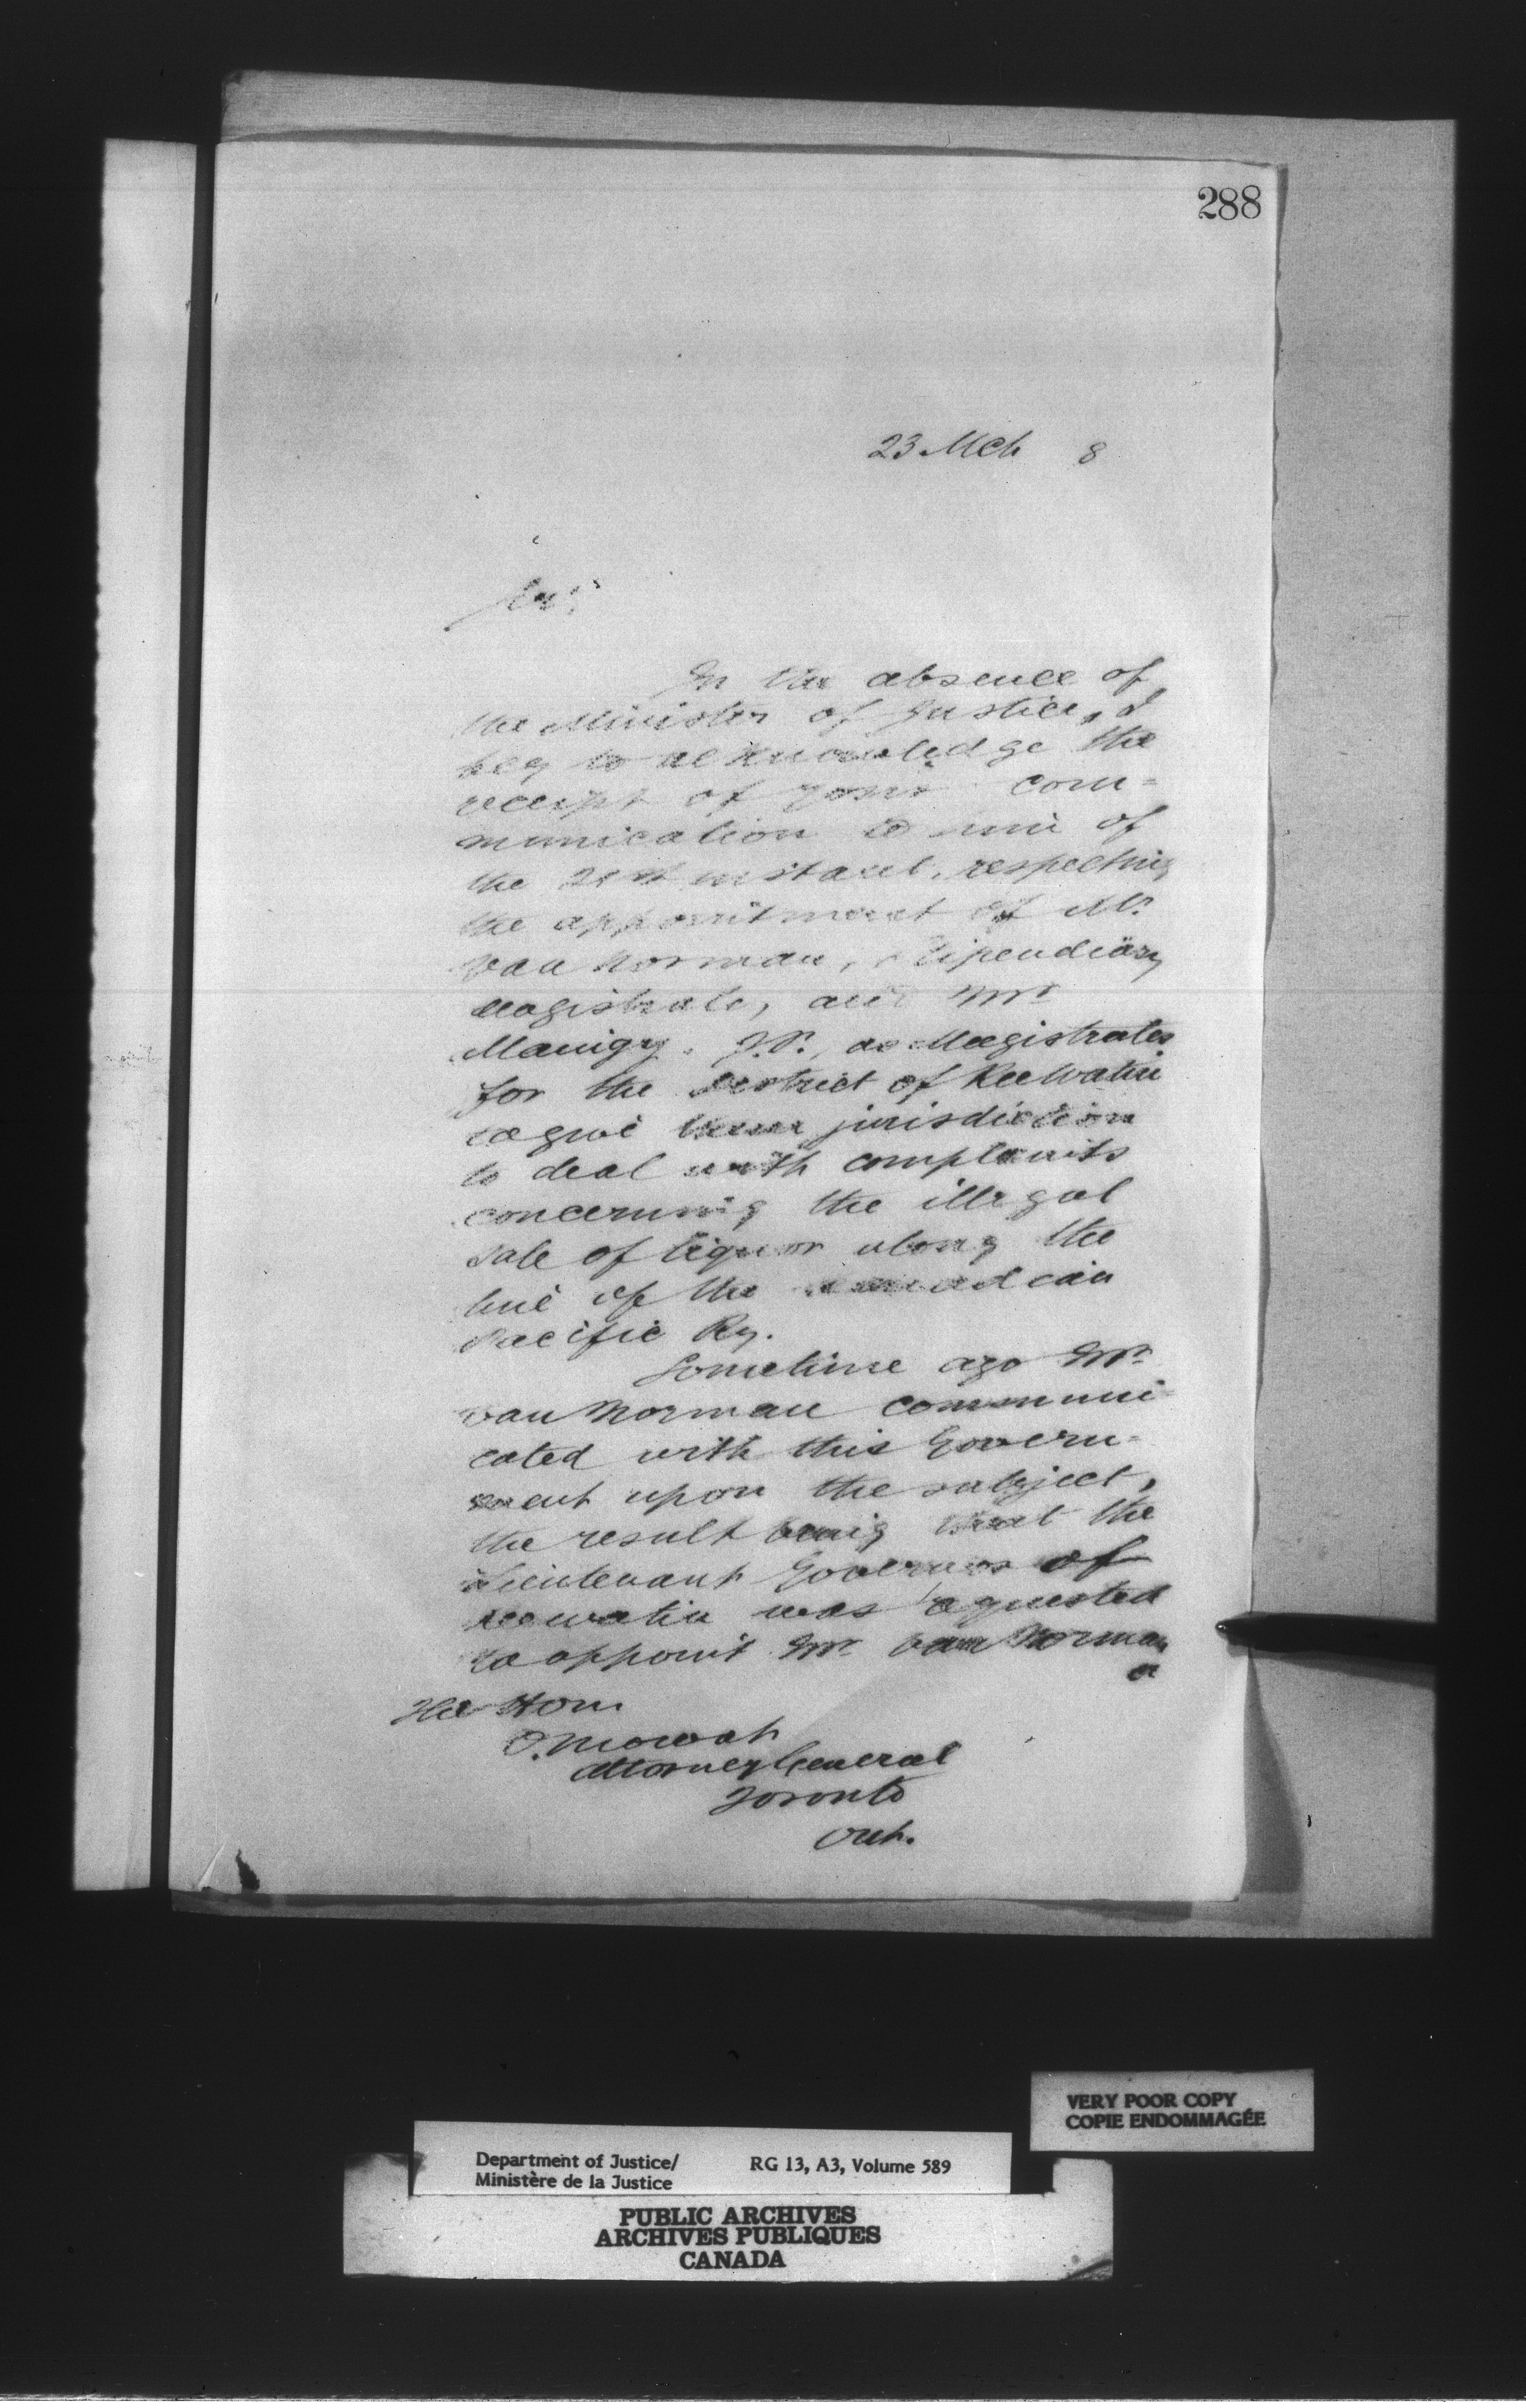 288
23 Mch 8
Sir,
In the absence of
the Minister of Justice, I
beg to acknowledge the
receipt of your com=
munication to him of
the 21st instant, respecting
the appointment of Mr
Van Norman, Stipendiary
Magistrate, and Mr
J.P., as Magistrates
for the District of Keewatin
to give them jurisdiction
to deal with complaints
concerning the illegal
sale of liquor along the
line of the Canadian
Pacific Ry.
Sometime ago Mr
Van Norman communi=
cated with this Govern=
ment upon the subject,
the result being that the
Lieutenant Governor of
Keewatin was requested
to appoint Mr Van Norman
a
The Hon
O. Mowat
Attorney General
Toronto
Ont.
VERY POOR COPY
COPIE ENDOMMAGÉE
Department of Justice/ RG 13, A3, Volume 589
Ministère de la Justice
PUBLIC ARCHIVES
ARCHIVES PUBLIQUES
CANADA